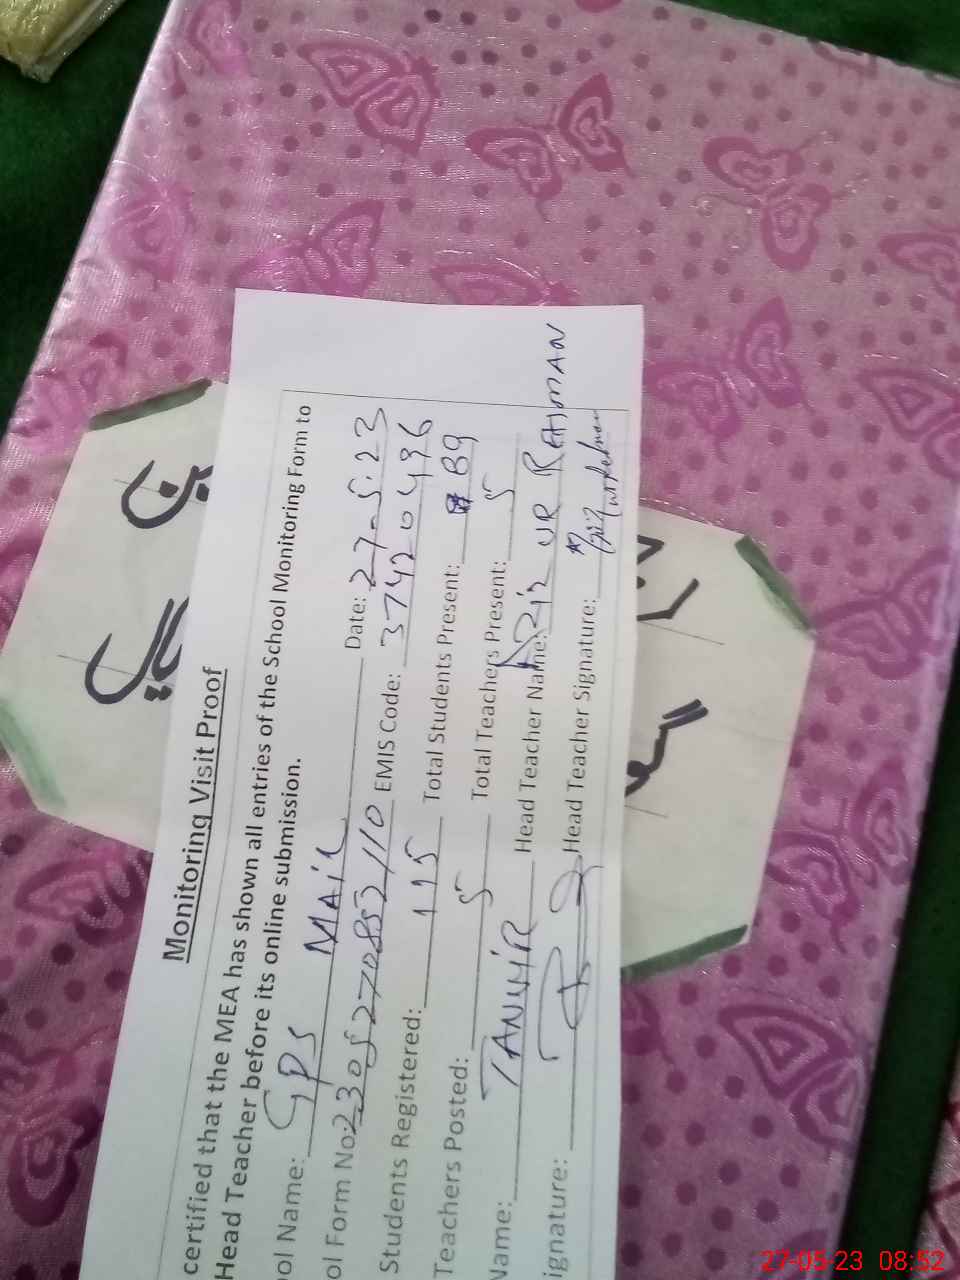 Monitoring Visit Proof
certified that the MEA has shown all entries of the School Monitoring Form to
Head Teacher before its online submission.
ool Name: GPS MAiL Date: 27-5-23
ol Form No: 2305270853110 EMIS Code: 37420496
Students Registered: 115 Total Students Present: 89
Teachers Posted: 5 Total Teachers Present: 5
Name: TANViR Head Teacher Name: AZiz UR REHMAN
ignature: Head Teacher Signature:
27-05-23 08:52